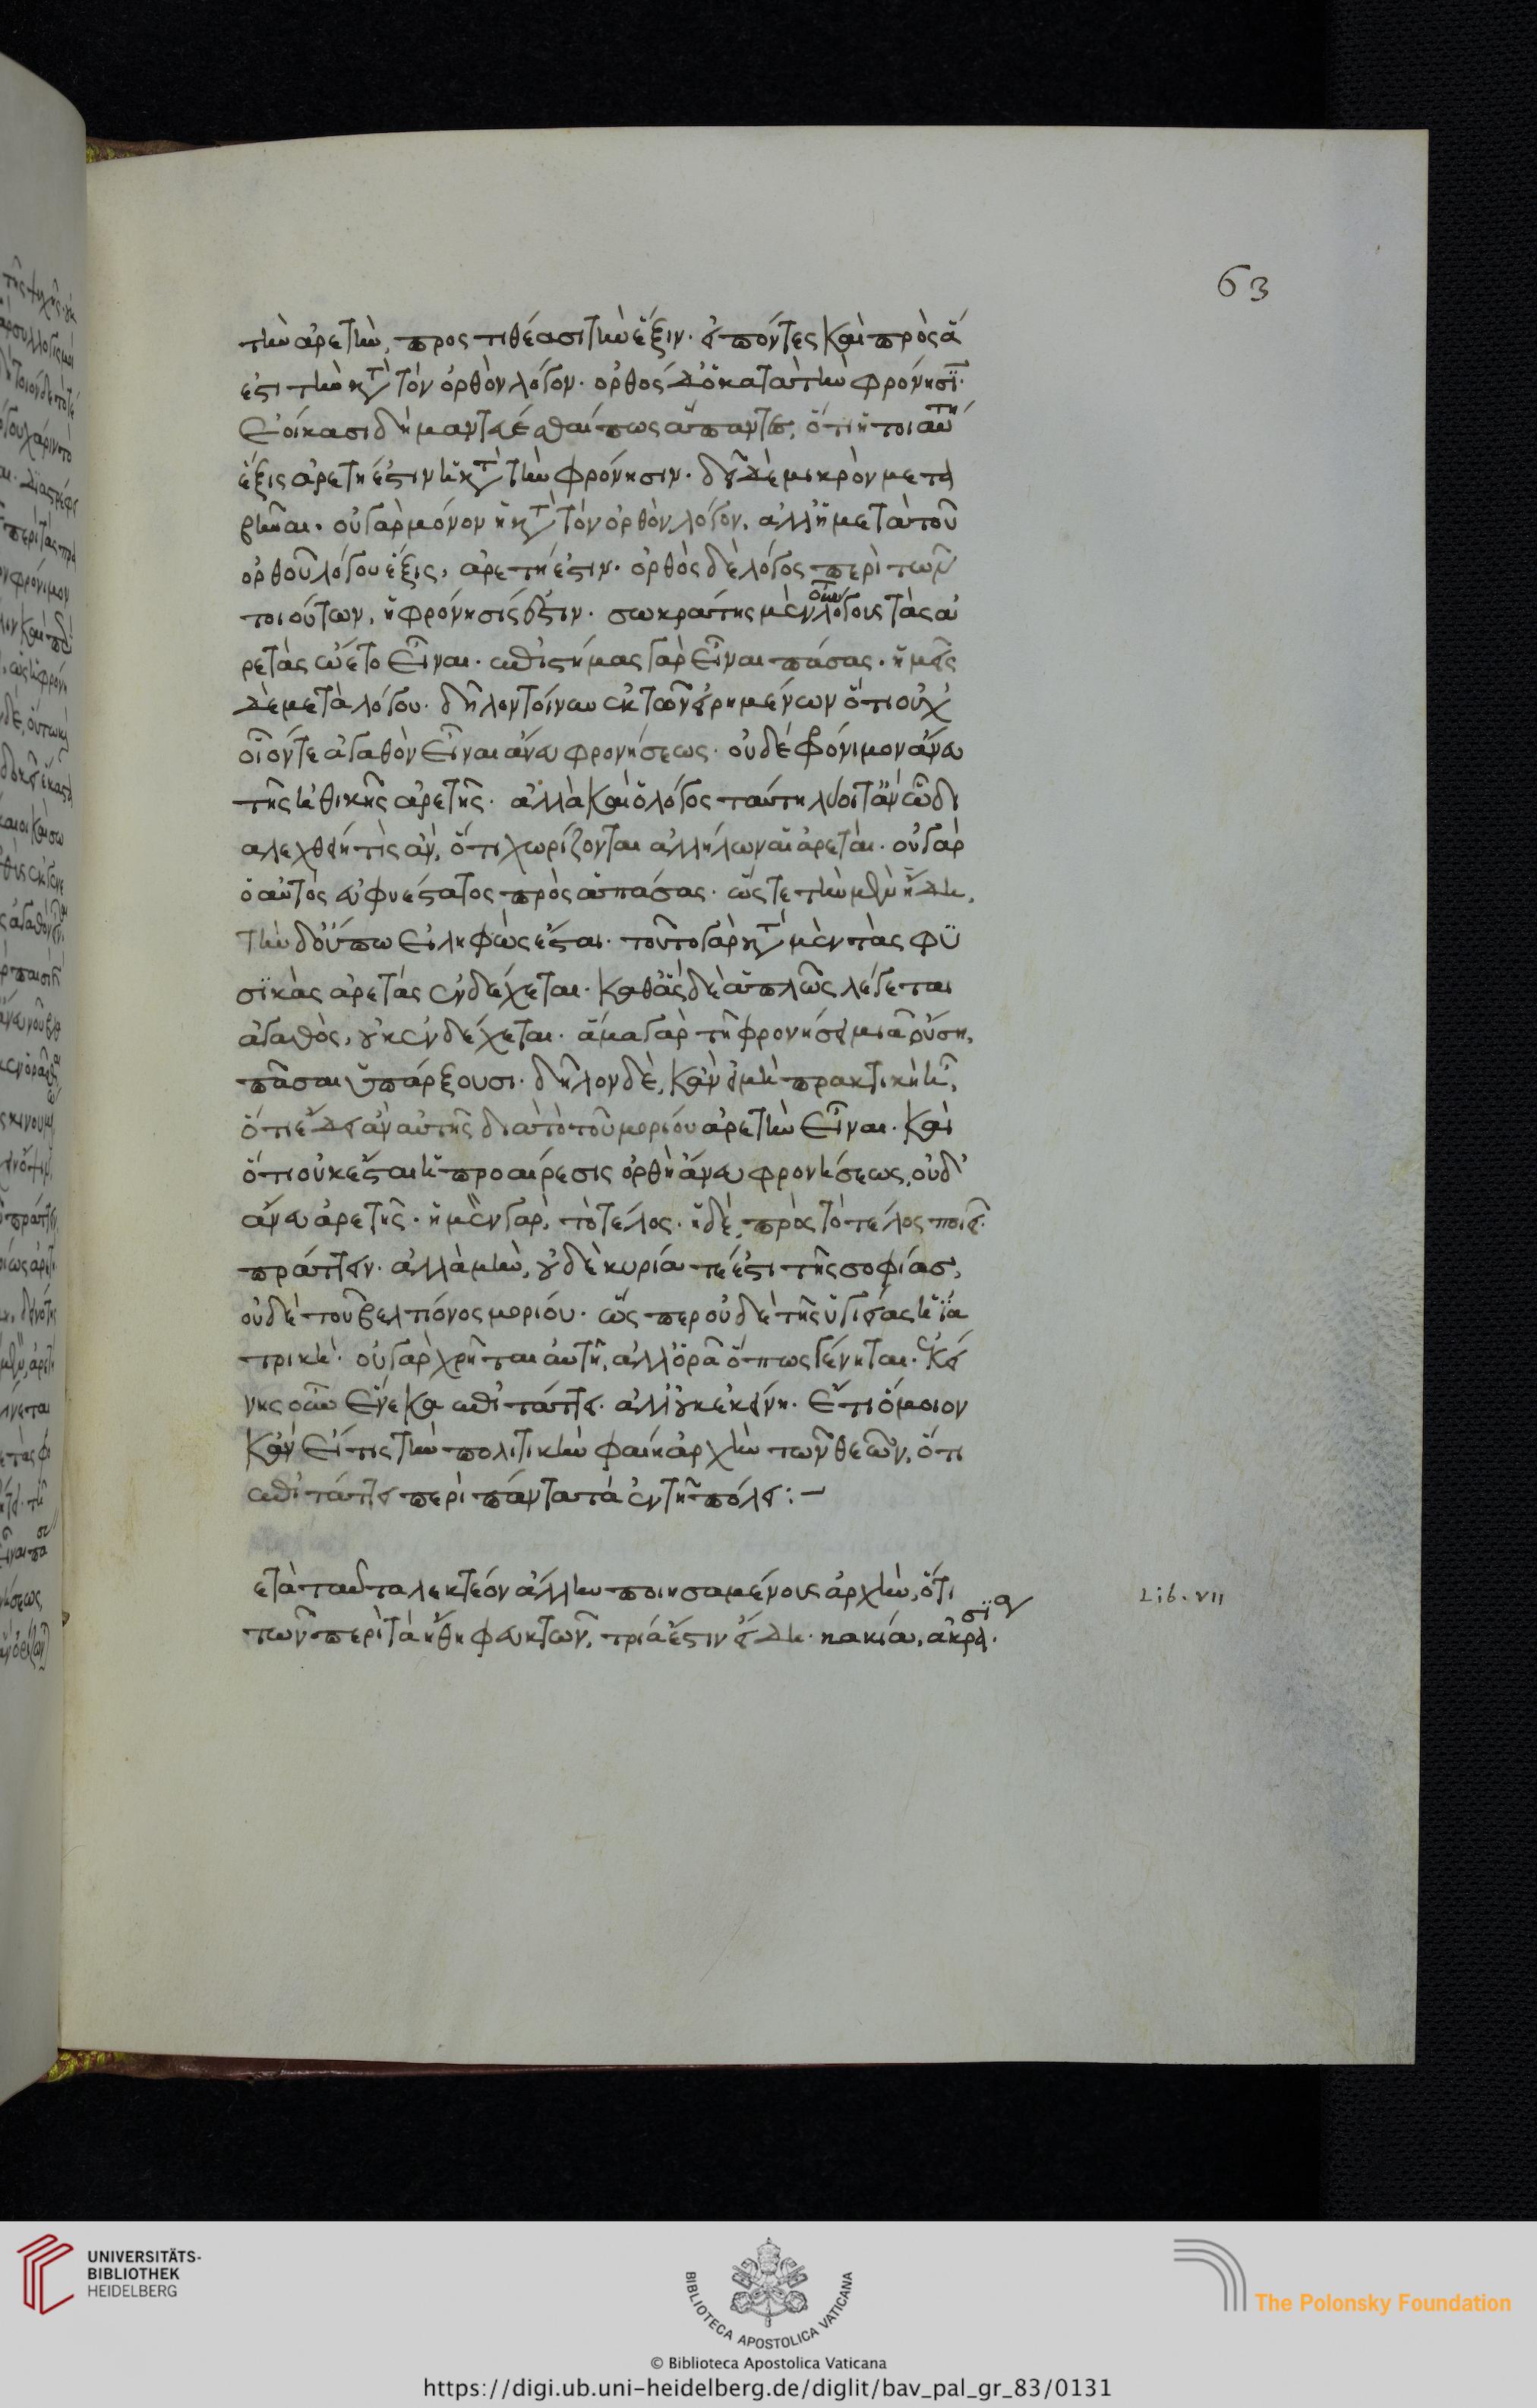 τὴν ἀρετὴν, προστιθέασι τὴν ἕξιν. εἰπόντες καὶ πρὸς ἅ
ἐστι τὴν κατὰ τὸν ὀρθὸν λόγον. ὀρθὸς δ' ὁ κατὰ τὴν φρόνησϊν.
Ἐοίκασι δὴ μαντεύεσθαί πως ἅπαντες, ὅτι ἡ τοιαύτη
ἕξις ἀρετή ἐστιν ἡ κατὰ τὴν φρόνησιν. δεῖ δὲ μικρὸν μετα
βῆναι. οὐ γὰρ μόνον ἡ κατὰ τὸν ὀρθὸν λόγον, ἀλλ' ἡ μετὰ τοῦ
ὀρθοῦ λόγου ἕξις, ἀρετή ἐστιν. ὀρθὸς δὲ λόγος περὶ τῶν
τοιούτων, ἡ φρόνησίς ἐστιν. σωκράτης μὲν οὖν λόγους τὰς ἀ
ρετὰς ᾤετο εἶναι. ἐπιστήμας γὰρ εἶναι πάσας. ἡμεῖς
δὲ μετὰ λόγου. δῆλον τοίνυν ἐκ τῶν εἰρημένων ὅτι οὐχ
οἷόν τε ἀγαθὸν εἶναι ἄνευ φρονήσεως. οὐδὲ φρόνιμον ἄνευ
τῆς ἠθικῆς ἀρετῆς. ἀλλὰ καὶ ὁ λόγος ταύτῃ λύοιτ' ἂν ᾧ δι
αλεχθείη τὶς ἂν, ὅτι χωρίζονται ἀλλήλων αἱ ἀρεταί. οὐ γὰρ
ὁ αὐτὸς εὐφυέστατος πρὸς ἁπάσας. ὥστε τὴν μὲν ἤδη,
τὴν δ' οὔπω εἰληφὼς ἔσται. τοῦτο γὰρ κατὰ μὲν τὰς φϋ
σϊκὰς ἀρετὰς ἐνδέχεται. καθ' ἃς δὲ ἁπλῶς λέγεται
ἀγαθὸς, οὐκ ἐνδέχεται. ἅμα γὰρ τῇ φρονήσει μιᾷ οὔσῃ,
πᾶσαι ὑπάρξουσι. δῆλον δὲ, κἂν εἰ μὴ πρακτικὴ ἦν,
ὅτι ἔδει ἂν αὐτῆς διὰ τὸ τοῦ μορίου ἀρετὴν εἶναι. καὶ
ὅτι οὐκ ἔσται ἡ προαίρεσις ὀρθὴ ἄνευ φρονήσεως, οὐδ'
ἄνευ ἀρετῆς. ἡ μὲν γὰρ, τὸ τέλος. ἡ δὲ, πρὸς τὸ τέλος ποιεῖ
πράττειν. ἀλλὰ μὴν, οὐδὲ κυρία τέ ἐστι τῆς σοφίας,
οὐδὲ τοῦ βελτίονος μορίου. ὥσπερ οὐδὲ τῆς ὑγιείας ἡ ἰα
τρική. οὐ γὰρ χρῆται αὐτῇ, ἀλλ' ὁρᾷ ὅπως γένηται. ἐκεί
νης οὖν ἕνεκα ἐπιτάττει. ἀλλ' οὐκ ἐκείνῃ. Ἔτι ὅμοιον
κἂν εἴ τις τὴν πολιτικὴν φαίη ἄρχειν τῶν θεῶν, ὅτι
ἐπιτάττει περὶ πάντα τὰ ἐν τῇ πόλει:—
ετὰ ταῦτα λεκτέον ἄλλην ποιησαμένους ἀρχὴν, ὅτι
τῶν περὶ τὰ ἤθη φευκτῶν, τρία ἐστὶν εἴδη. κακία, ἀκρασϊα.
63
Lib. VII
UNIVERSITÄTS-
BIBLIOTHEK
HEIDELBERG
BIBLIOTECA APOSTOLICA VATICANA
© Biblioteca Apostolica Vaticana
The Polonsky Foundation
https://digi.ub.uni-heidelberg.de/diglit/bav_pal_gr_83/0131